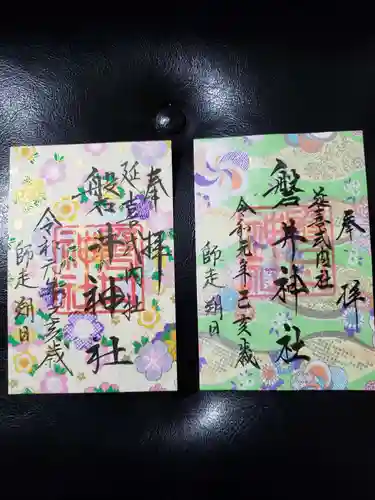 奉拝
延喜式内社
磐井神社
令和元年己亥歳
師走朔日
奉拝
延喜式内社
磐井神社
令和元年己亥歳
師走朔日